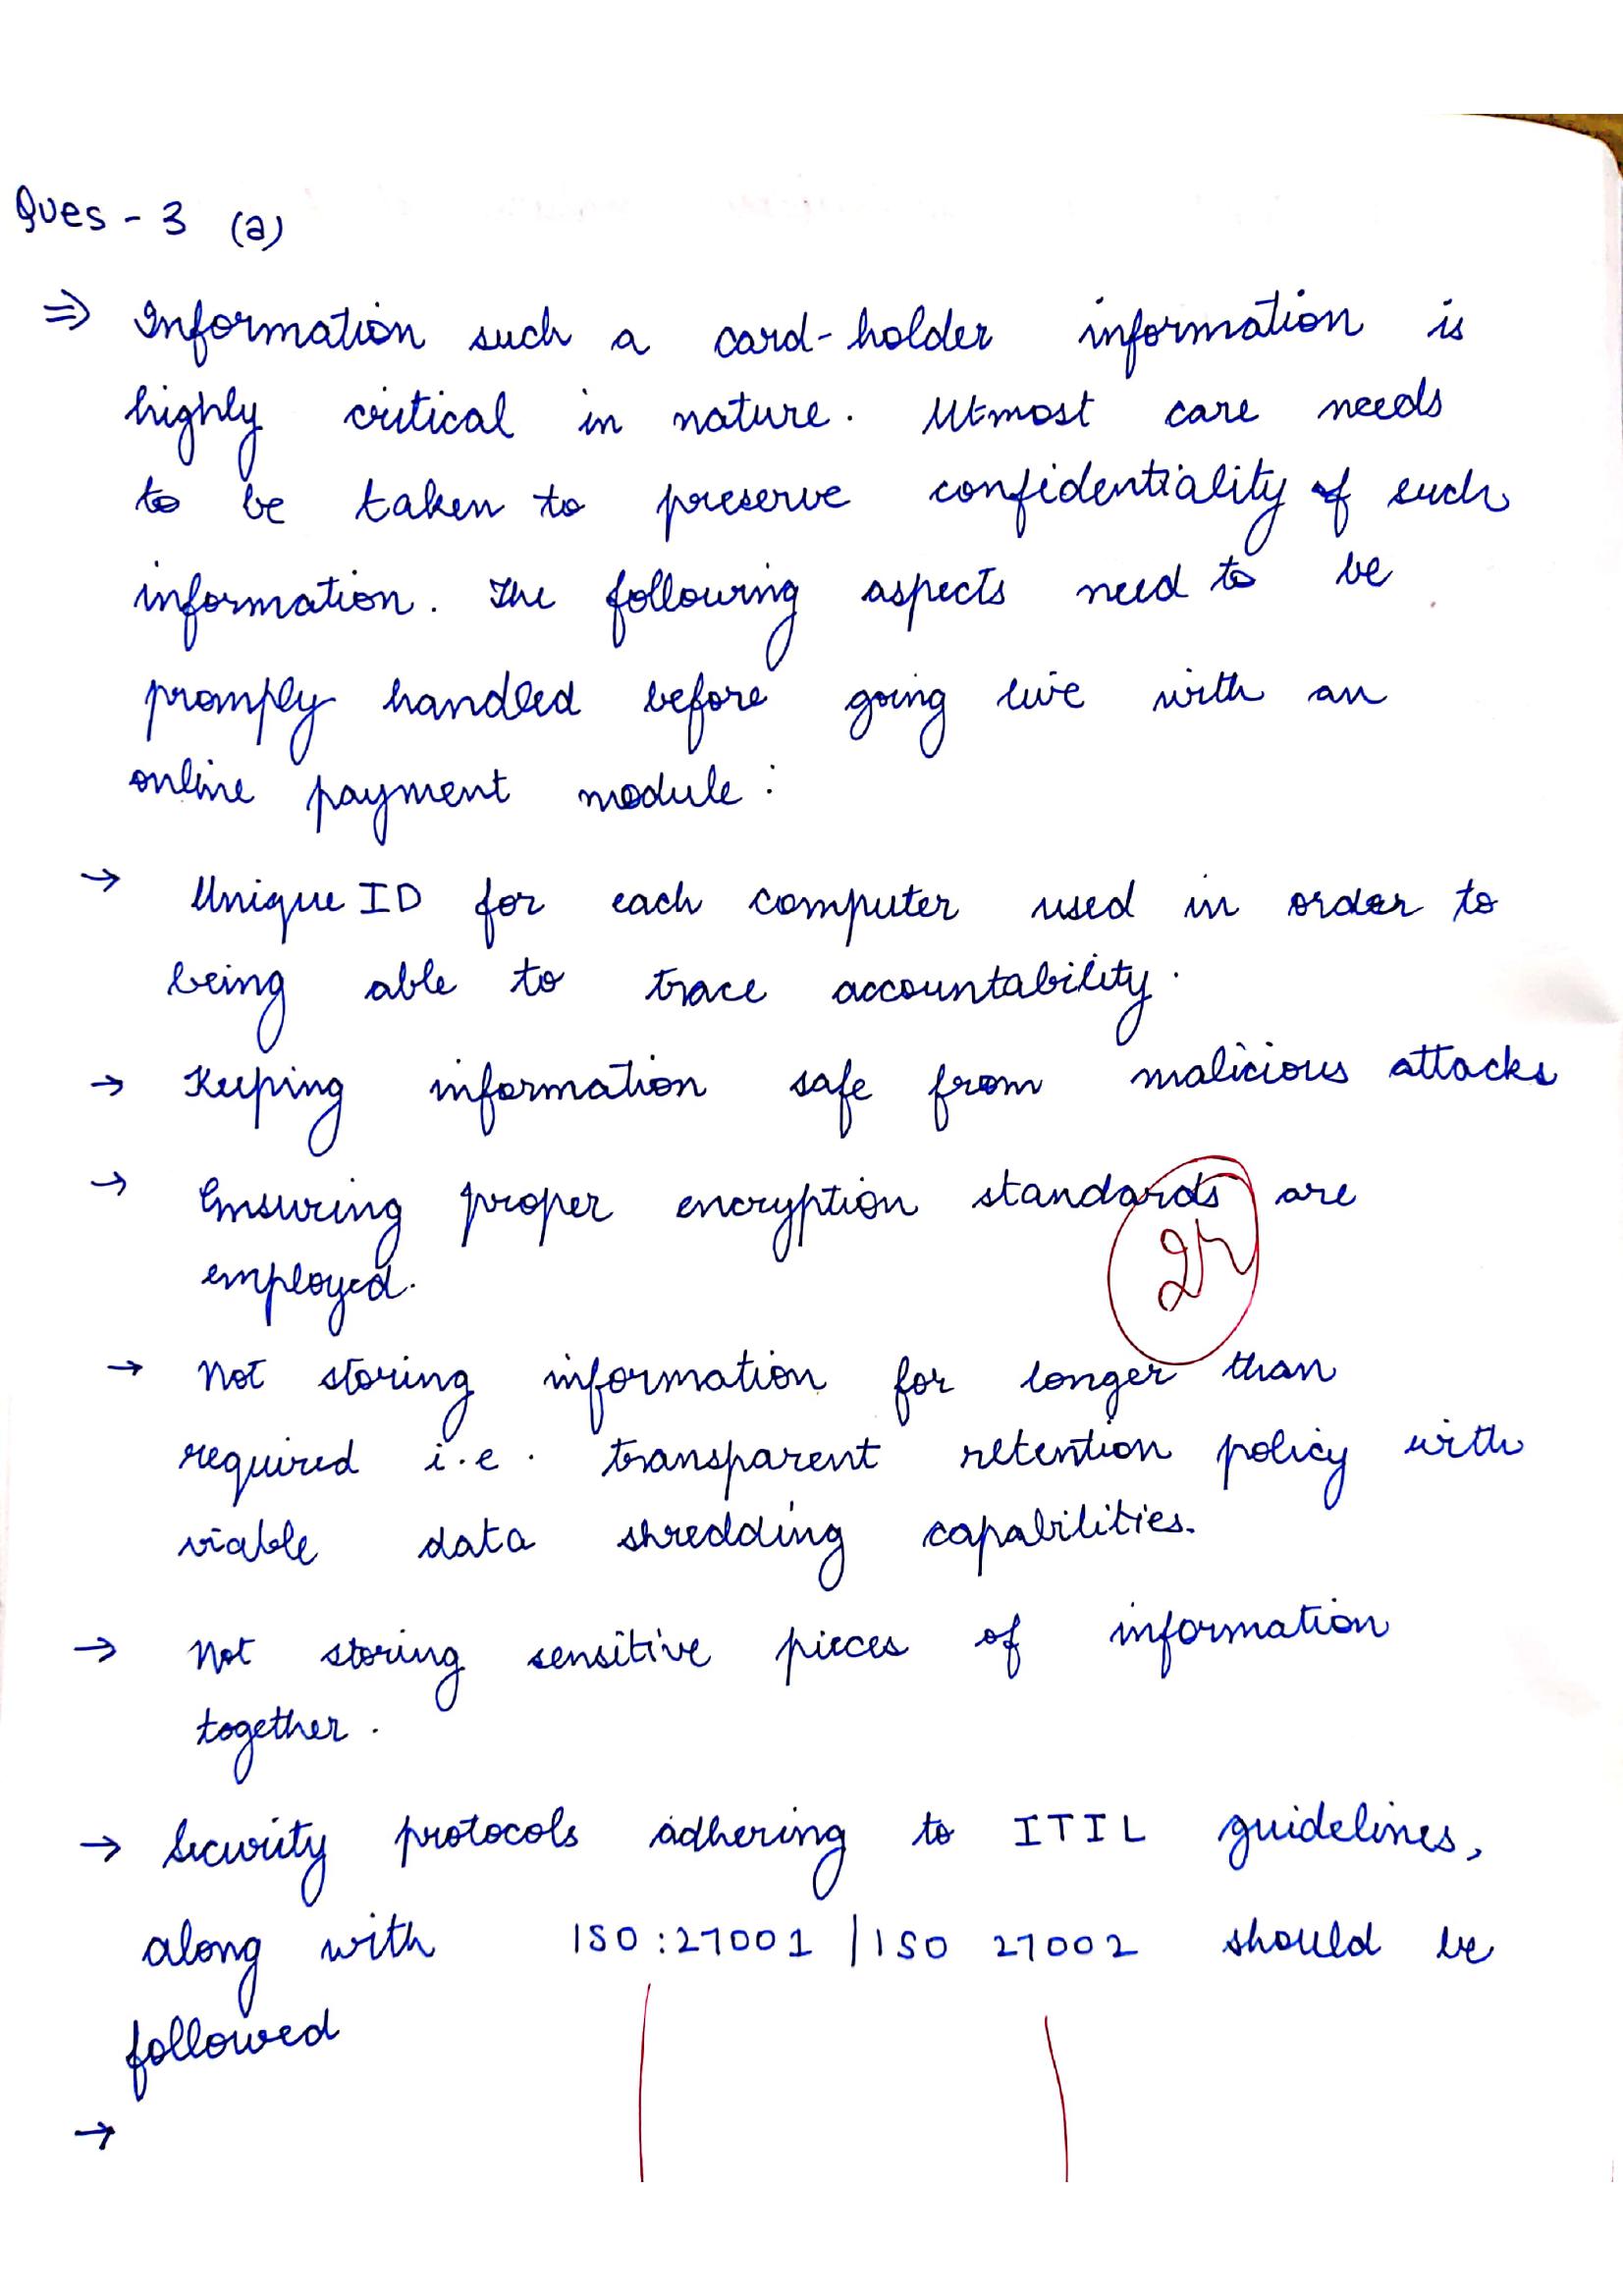 Ques - 3 (a)
⇒ Information such a card-holder information is
highly critical in nature. Utmost care needs
to be taken to preserve confidentiality of such
information. The following aspects need to be
promply handled before going live with an
online payment module:
→ Unique ID for each computer used in order to
being able to trace accountability.
→ Keeping information safe from malicious attacks
→ Ensuring proper encryption standards are
employed.
→ Not storing information for longer than
required i.e. transparent retention policy with
viable data shredding capabilities.
→ Not storing sensitive pieces of information
together.
→ Security protocols adhering to ITIL guidelines,
along with ISO:27001 / ISO 27002 should be
followed
→